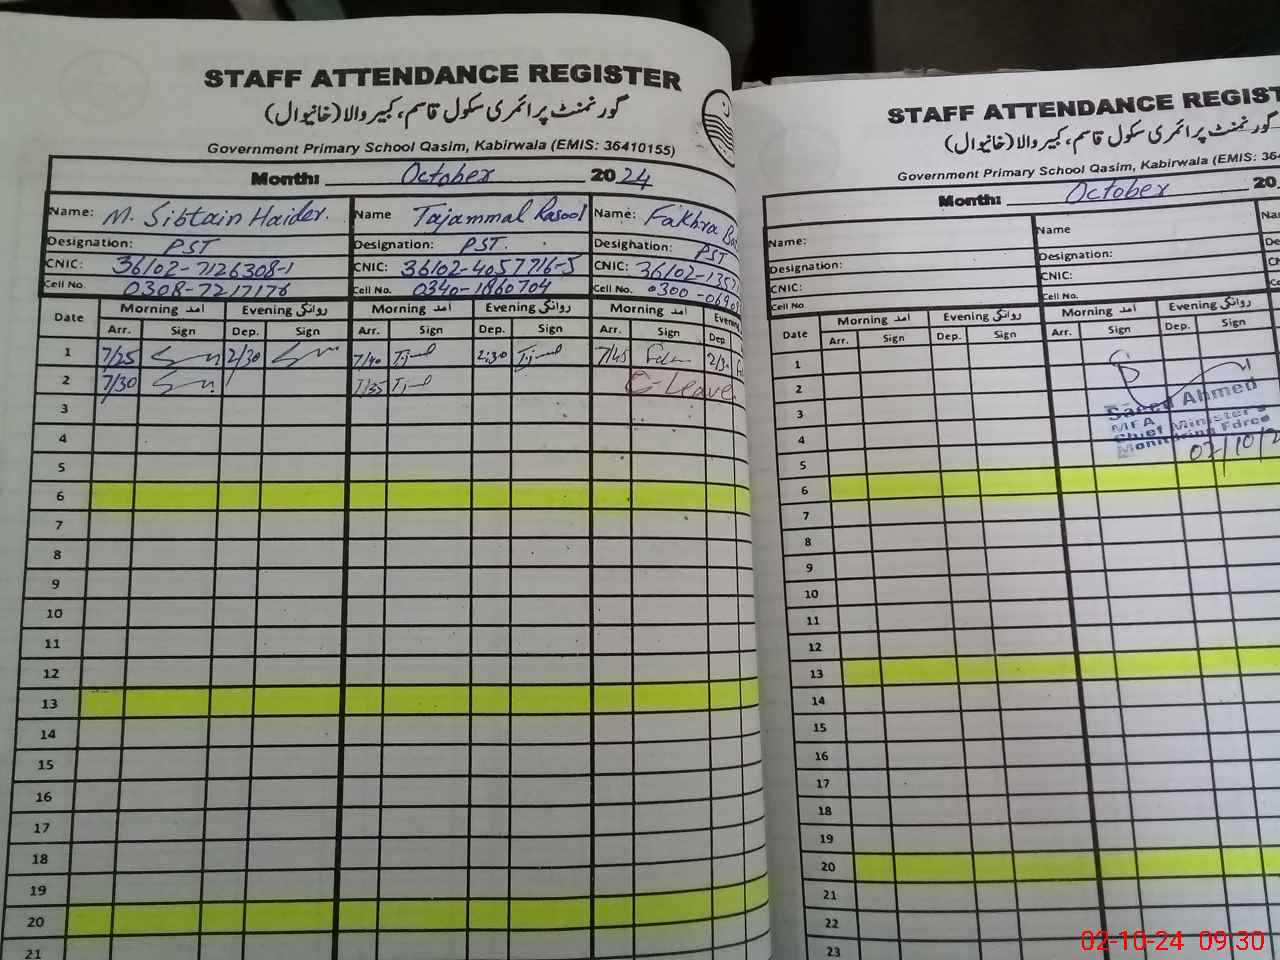 STAFF ATTENDANCE REGISTER
گورنمنٹ پرائمری سکول قاسم، کبیروالا (خانیوال)
Government Primary School Qasim, Kabirwala (EMIS: 36410155)
Month: October 2024
Name: M. Sibtain Haider. Name Tajammal Rasool Name: Fakhra
Designation: PST Designation: PST. Designation: PST
CNIC: 36102-7126308-1 CNIC: 36102-4057716-5 CNIC: 36102-1357
Cell No. 0308-7217176 Cell No. 0340-1860704 Cell No. 0300-069
Date Morning آمد Evening روانگی Morning آمد Evening روانگی Morning آمد Evening
Arr. Sign Dep. Sign Arr. Sign Dep. Sign Arr. Sign Dep
1 7/25 2/30 7/40 2:30 7/45 2/30
2 7/30 7/35 C-Leave
3
4
5
6
7
8
9
10
11
12
13
14
15
16
17
18
19
20
21
STAFF ATTENDANCE REGIST
گورنمنٹ پرائمری سکول قاسم، کبیروالا (خانیوال)
Government Primary School Qasim, Kabirwala (EMIS: 364
Month: October 20
Name: Name Na
Designation: Designation: De
CNIC: CNIC: CN
Cell No. Cell No. Ce
Date Morning آمد Evening روانگی Morning آمد Evening روانگی
Arr. Sign Dep. Sign Arr. Sign Dep. Sign
1
2
3
4
5
6
7
8
9
10
11
12
13
14
15
16
17
18
19
20
21
22
23
Saeed Ahmed
MEA
Chief Minister's
Monitoring Force
02/10/2
02-10-24 09:30